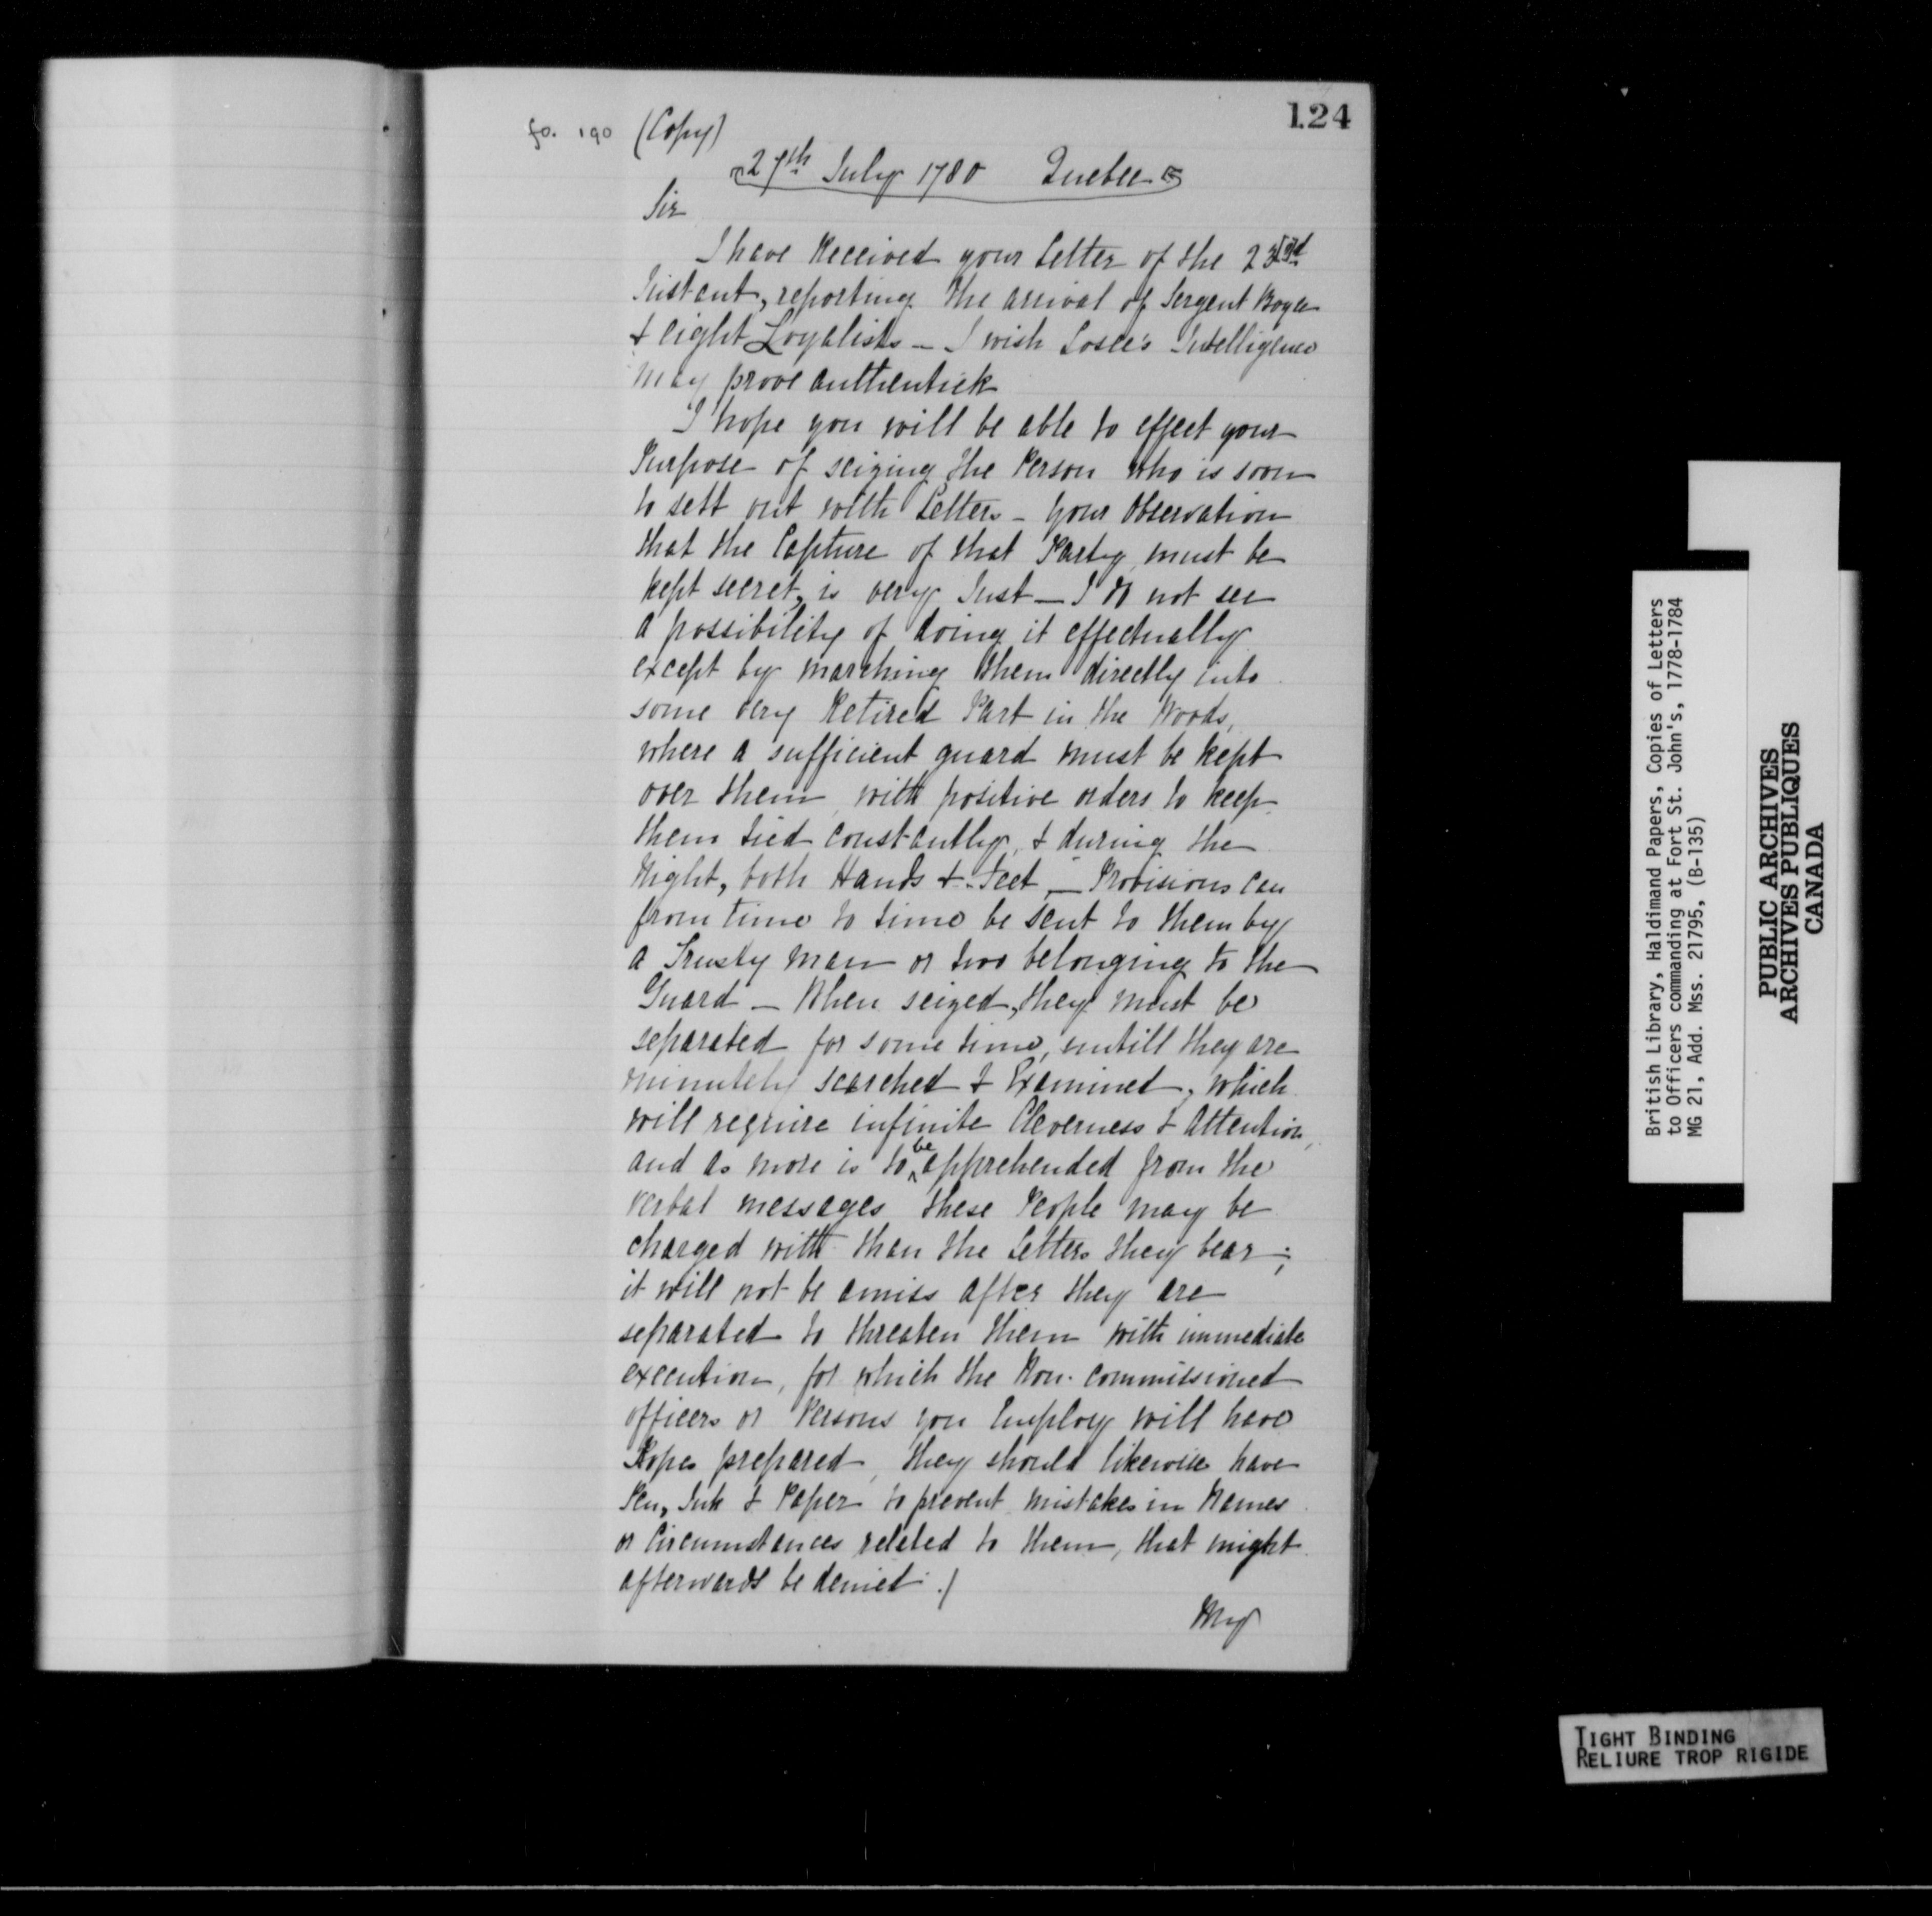 124
fo. 190 (Copy)
27th July 1780 Quebec
Sir
I have Received your Letter of the 23rd
Instant, reporting the arrival of Sergent
& eight Loyalists _ I wish Losee's Intelligence
may prove authentick
I hope you will be able to effect your
Purpose of seizing the Person who is soon
to sett out with Letters _ your Observation
that the Capture of that Party must be
kept secret, is very Just _ I do not see
a possibility of doing it effectually
except by marching them directly into
some very Retired Part in the Woods,
where a sufficient guard must be kept
over them with positive orders to keep
them tied constantly, & during the
Night, both Hands & Feet, _ Provisions can
from time to time be sent to them by
a Trusty man or two belonging to the
Guard _ When seized, they must be
separated for some time, untill they are
minutely searched & Examined, which
will require infinite Cleverness & Attention,
and as more is to be apprehended from the
verbal messages these People may be
charged with than the Letters they bear ;
it will not be amiss after they are
separated to threaten them with immediate
execution, for which the Non-commissioned
officers or Persons you Employ will have
Ropes prepared, they should likewise have
Pen, Ink & Paper to prevent mistakes in Names
or Circumstances related to them, that might
afterwards be denied ./
My
British Library, Haldimand Papers, Copies of Letters
to Officers commanding at Fort St. John's, 1778-1784
MG 21, Add. Mss. 21795, (B-135)
PUBLIC ARCHIVES
ARCHIVES PUBLIQUES
CANADA
TIGHT BINDING
RELIURE TROP RIGIDE